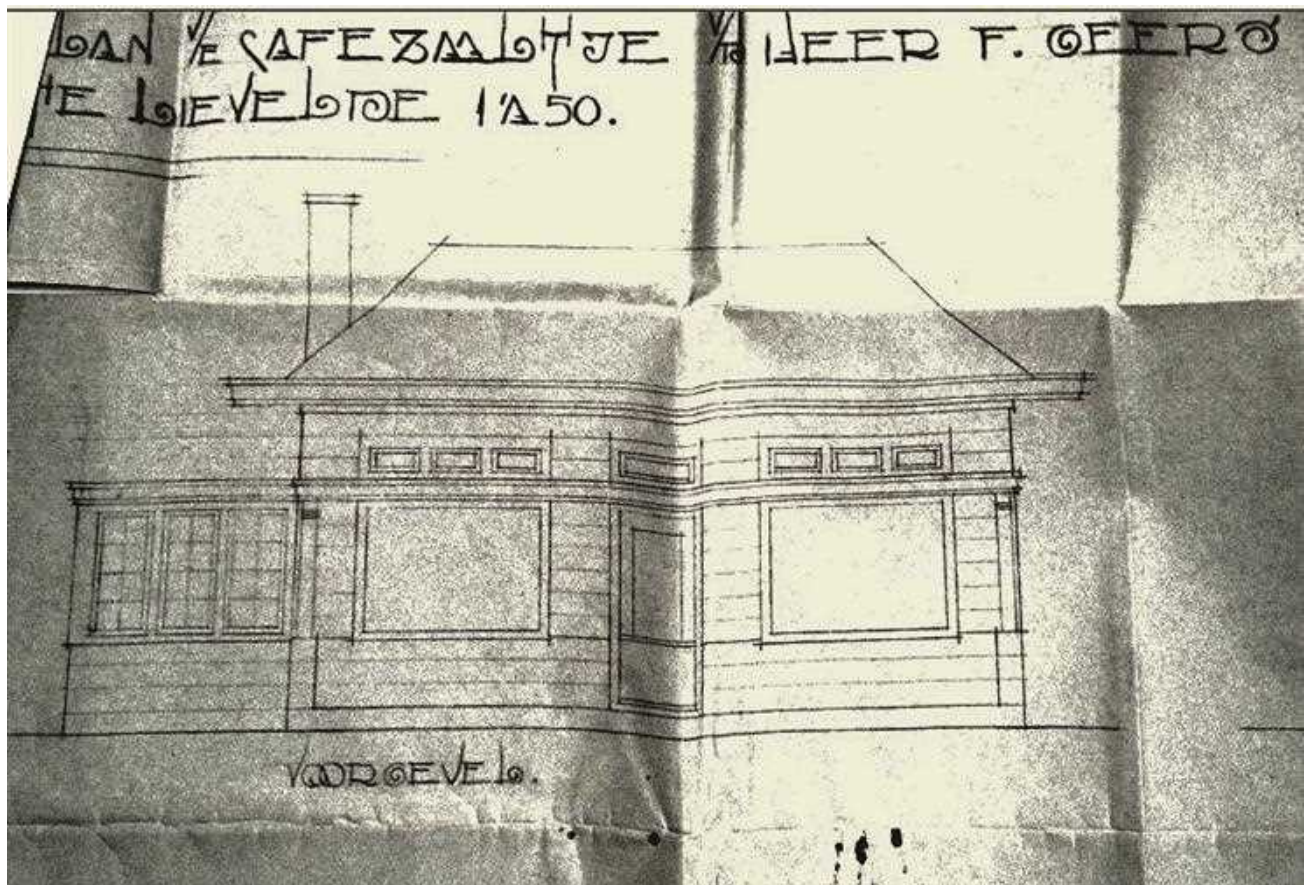 LAN V/E CAFEZAALTJE V/D HEER F. GEERS
TE LIEVELDE 1 A 50.
VOORGEVEL.